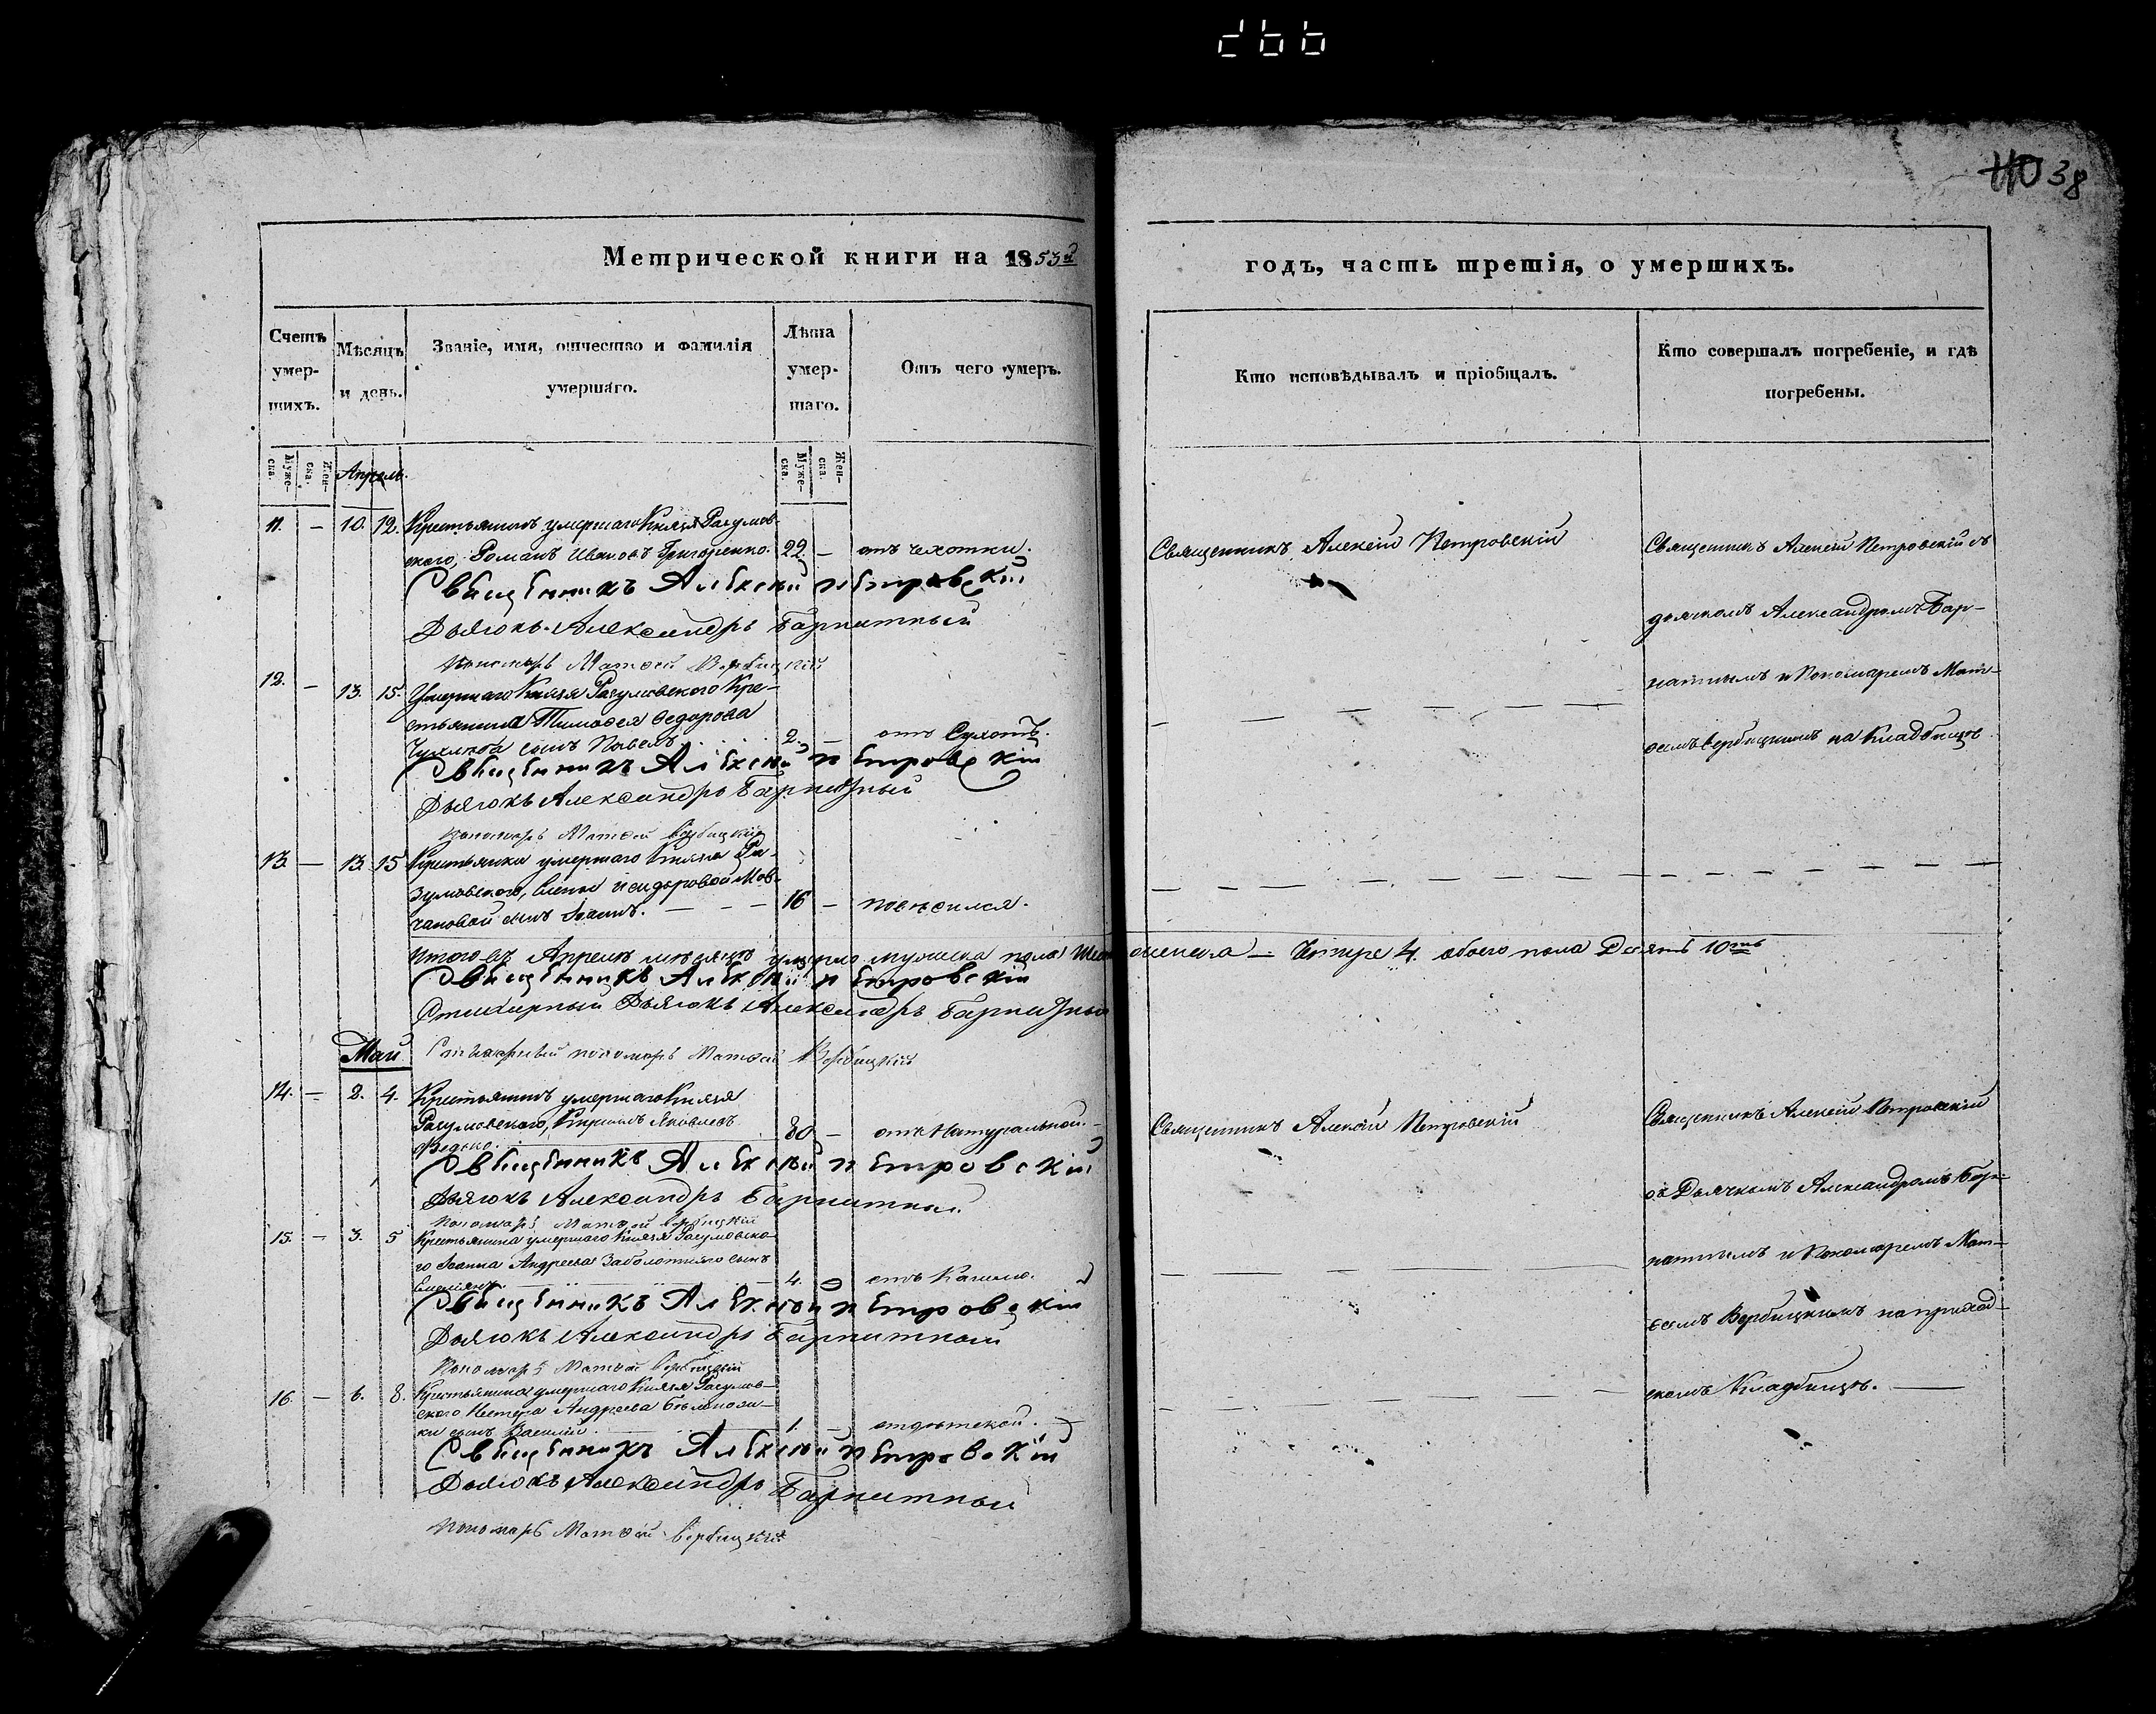 266
40 38
Метрической книги на 1853й
годъ, часть третія, о умершихъ.
Счетъ умер-шихъ.
Мѣсяцъ и день.
Званіе, имя, отчество и фамилія умершаго.
Лѣта умер-шаго.
Отъ чего умеръ.
Кто исповѣдывалъ и пріобщалъ.
Кто совершалъ погребеніе, и гдѣ погребены.
Муже-ска.
Жен-ска.
Апрель.
Муже-ска.
Жен-ска.
11. – 10. 12. Крестьянинъ умершаго Князя Разумов-
ского, Романъ Ивановъ Григоренко. 22 – отъ чахотки.
Священникъ Алексѣй Петровскій
Дьячокъ Александръ Барнатный
Пономарь Матѳей Вербицкій
Священникъ Алексѣй Петровскій
Священникъ Алексѣй Петровскій съ
дьячкомъ Александромъ Бар-
натнымъ и Пономаремъ Мат-
ѳеемъ Вербицкимъ на Кладбищѣ.
12. – 13. 15. Умершаго Князя Разумовского Кре-
стьянина Тимоѳея Ѳедорова
сынъ Павелъ. 2. – отъ Сухотъ.
Священникъ Алексѣй Петровскій
Дьячокъ Александръ Барнатный
Пономарь Матѳей Вербицкій
13. – 13. 15 Крестьянки умершаго Князя Ра-
зумовского, Елены Исидоровой Мов-
чановой сынъ Іоаннъ. 16 – повѣсился.
Итого въ Апрелѣ мѣсяцѣ умерло мужеска пола женска – Четыре 4. обоего пола Десять 10ть
Священникъ Алексѣй Петровскій
Стихарный Дьячокъ Александръ Барнатный
Май
Стихарный пономарь Матѳей Вербицкій
14. – 2. 4. Крестьянинъ умершаго Князя
Разумовского, Кириллъ Яковлевъ
80 – отъ Натуральной.
Священникъ Алексѣй Петровскій
Дьячокъ Александръ Барнатный
Пономарь Матѳей Вербицкій
Священникъ Алексѣй Петровскій
Священникъ Алексѣй Петровскій
съ Дьячкомъ Александромъ Бар-
натнымъ и Пономаремъ Мат-
ѳеемъ Вербицкимъ на приход-
скомъ Кладбищѣ.
15. – 3. 5 Крестьянина умершаго Князя Разумовско-
го Іоанна Андреева Заболотнаго сынъ
4. отъ Кашлю.
Священникъ Алексѣй Петровскій
Дьячокъ Александръ Барнатный
Пономарь Матѳей Вербицкій
16. – 6. 8. Крестьянина умершаго Князя Разумов-
ского Нестера Андреева
сынъ Василій. 1. – отъ дѣтской.
Священникъ Алексѣй Петровскій
Дьячокъ Александръ Барнатный
Пономарь Матѳей Вербицкій